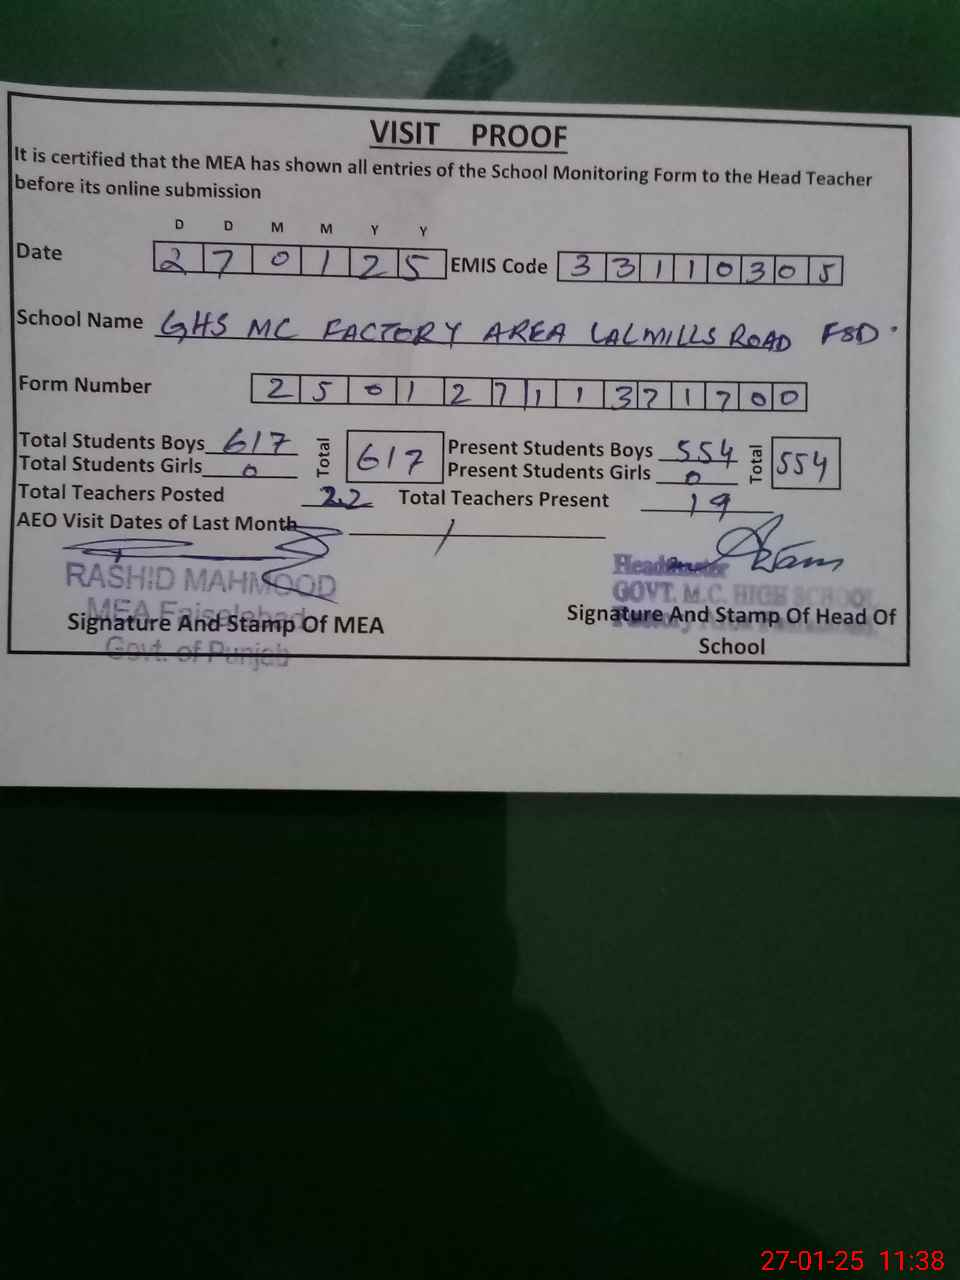 VISIT PROOF
It is certified that the MEA has shown all entries of the School Monitoring Form to the Head Teacher
before its online submission
D D M M Y Y
Date 2 7 0 1 2 5 EMIS Code 3 3 1 1 0 3 0 5
School Name GHS MC FACTORY AREA LALMILLS ROAD FSD.
Form Number 2 5 0 1 2 7 1 1 3 7 1 7 0 0
Total Students Boys 617 Total 617 Present Students Boys 554 Total 554
Total Students Girls 0 Present Students Girls 0
Total Teachers Posted 22 Total Teachers Present 19
AEO Visit Dates of Last Month /
RASHID MAHMOOD
MEA Faisalabad
Govt. of Punjab
Signature And Stamp Of MEA
GOVT. M.C. HIGH SCHOOL
Factory
Signature And Stamp Of Head Of
School
27-01-25 11:38